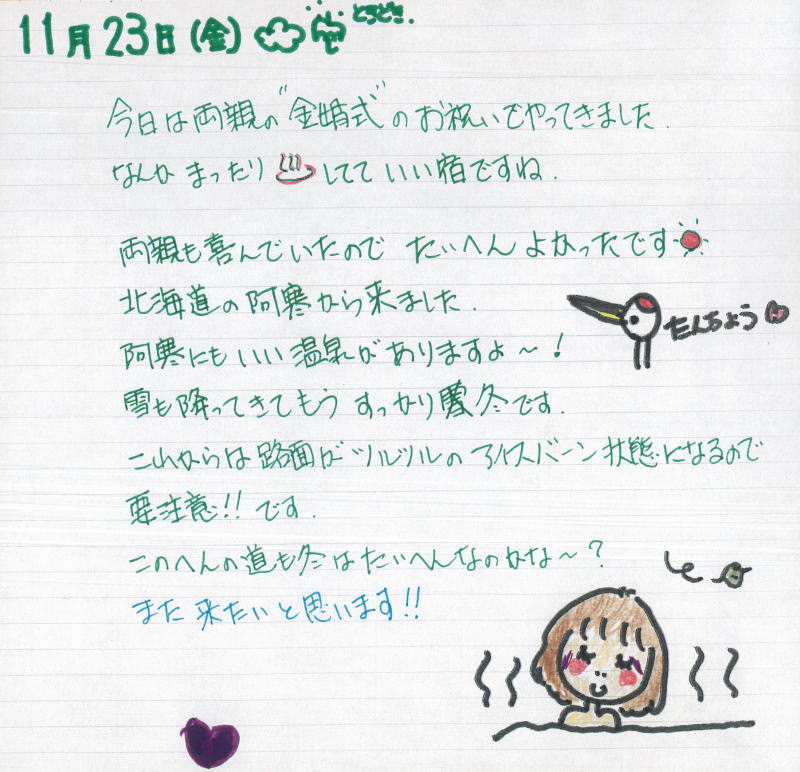 11月23日(金) ときどき.
今日は両親の"金婚式"のお祝いでやってきました.
なんか まったり♨してて いい宿ですね.
両親も喜んでいたので たいへん よかったです
北海道の阿寒から来ました.
たんちょう
阿寒にもいい温泉がありますよ〜!
雪も降ってきてもう すっかり冬です.
これからは路面がツルツルのアイスバーン状態になるので
要注意!!です.
このへんの道も冬はたいへんなのかな〜?
また来たいと思います!!